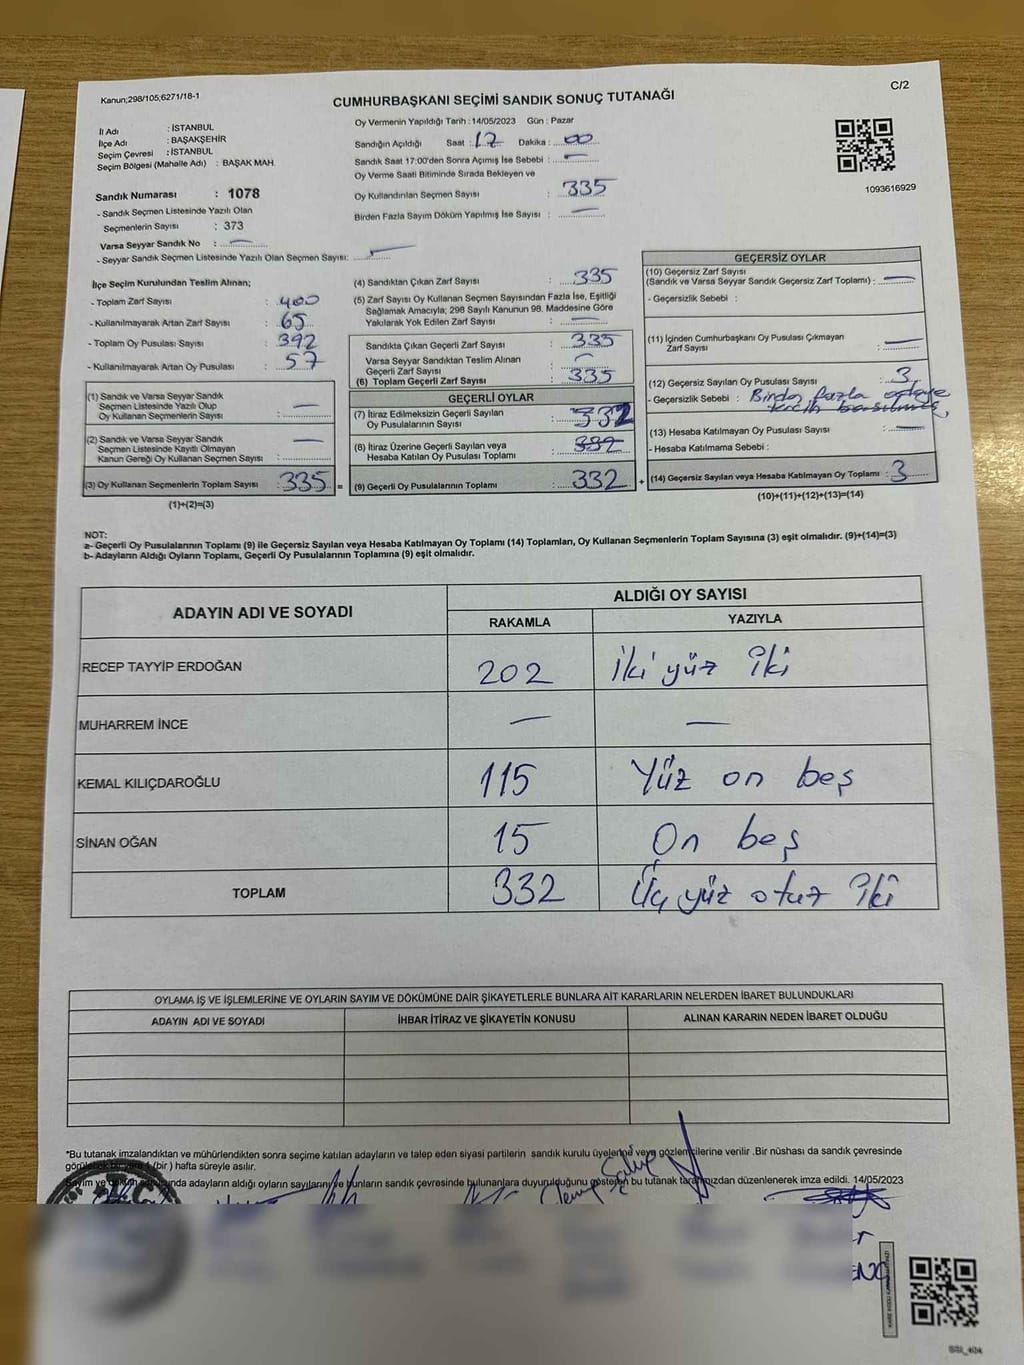 Kanun;298/105;6271/18-1
C/2
CUMHURBAŞKANI SEÇİMİ SANDIK SONUÇ TUTANAĞI
İl Adı : İSTANBUL
İlçe Adı : BAŞAKŞEHİR
Seçim Çevresi : İSTANBUL
Seçim Bölgesi (Mahalle Adı) : BAŞAK MAH.
Sandık Numarası : 1078
- Sandık Seçmen Listesinde Yazılı Olan
Seçmenlerin Sayısı : 373
Varsa Seyyar Sandık No : —
- Seyyar Sandık Seçmen Listesinde Yazılı Olan Seçmen Sayısı:
Oy Vermenin Yapıldığı Tarih :14/05/2023 Gün : Pazar
Sandığın Açıldığı Saat : 17 Dakika : 00
Sandık Saat 17:00'den Sonra Açımış İse Sebebi : —
Oy Verme Saati Bitiminde Sırada Bekleyen ve
Oy Kullandırılan Seçmen Sayısı : 335
Birden Fazla Sayım Döküm Yapılmış İse Sayısı : —
1093616929
İlçe Seçim Kurulundan Teslim Alınan;
- Toplam Zarf Sayısı : 400
- Kullanılmayarak Artan Zarf Sayısı : 65
- Toplam Oy Pusulası Sayısı : 392
- Kullanılmayarak Artan Oy Pusulası : 57
(1) Sandık ve Varsa Seyyar Sandık
Seçmen Listesinde Yazılı Olup
Oy Kullanan Seçmenlerin Sayısı : —
(2) Sandık ve Varsa Seyyar Sandık
Seçmen Listesinde Kayıtlı Olmayan
Kanun Gereği Oy Kullanan Seçmen Sayısı : —
(3) Oy Kullanan Seçmenlerin Toplam Sayısı : 335 =
(1)+(2)=(3)
(4) Sandıktan Çıkan Zarf Sayısı : 335
(5) Zarf Sayısı Oy Kullanan Seçmen Sayısından Fazla İse, Eşitliği
Sağlamak Amacıyla; 298 Sayılı Kanunun 98. Maddesine Göre
Yakılarak Yok Edilen Zarf Sayısı : —
Sandıkta Çıkan Geçerli Zarf Sayısı : 335
Varsa Seyyar Sandıktan Teslim Alınan
Geçerli Zarf Sayısı : —
(6) Toplam Geçerli Zarf Sayısı : 335
GEÇERLİ OYLAR
(7) İtiraz Edilmeksizin Geçerli Sayılan
Oy Pusulalarının Sayısı : 332
(8) İtiraz Üzerine Geçerli Sayılan veya
Hesaba Katılan Oy Pusulası Toplamı : 332
(9) Geçerli Oy Pusulalarının Toplamı : 332 +
GEÇERSİZ OYLAR
(10) Geçersiz Zarf Sayısı
(Sandık ve Varsa Seyyar Sandık Geçersiz Zarf Toplamı) : —
- Geçersizlik Sebebi :
(11) İçinden Cumhurbaşkanı Oy Pusulası Çıkmayan
Zarf Sayısı : —
(12) Geçersiz Sayılan Oy Pusulası Sayısı : 3
- Geçersizlik Sebebi : Birden fazla adaya
tercih basılmış
(13) Hesaba Katılmayan Oy Pusulası Sayısı : —
- Hesaba Katılmama Sebebi :
(14) Geçersiz Sayılan veya Hesaba Katılmayan Oy Toplamı : 3
(10)+(11)+(12)+(13)=(14)
NOT:
a- Geçerli Oy Pusulalarının Toplamı (9) ile Geçersiz Sayılan veya Hesaba Katılmayan Oy Toplamı (14) Toplamları, Oy Kullanan Seçmenlerin Toplam Sayısına (3) eşit olmalıdır. (9)+(14)=(3)
b- Adayların Aldığı Oyların Toplamı, Geçerli Oy Pusulalarının Toplamına (9) eşit olmalıdır.
ADAYIN ADI VE SOYADI ALDIĞI OY SAYISI
RAKAMLA YAZIYLA
RECEP TAYYİP ERDOĞAN 202 İki yüz iki
MUHARREM İNCE — —
KEMAL KILIÇDAROĞLU 115 Yüz on beş
SİNAN OĞAN 15 On beş
TOPLAM 332 Üç yüz otuz iki
OYLAMA İŞ VE İŞLEMLERİNE VE OYLARIN SAYIM VE DÖKÜMÜNE DAİR ŞİKAYETLERLE BUNLARA AİT KARARLARIN NELERDEN İBARET BULUNDUKLARI
ADAYIN ADI VE SOYADI İHBAR İTİRAZ VE ŞİKAYETİN KONUSU ALINAN KARARIN NEDEN İBARET OLDUĞU
*Bu tutanak imzalandıktan ve mühürlendikten sonra seçime katılan adayların ve talep eden siyasi partilerin sandık kurulu üyelerine veya gözlemcilerine verilir .Bir nüshası da sandık çevresinde
görülebilir bir yere 1 (bir ) hafta süreyle asılır.
Sayım ve döküm sonucunda adayların aldığı oyların sayılarını ve bunların sandık çevresinde bulunanlara duyurulduğunu gösteren bu tutanak tarafımızdan düzenlenerek imza edildi. 14/05/2023